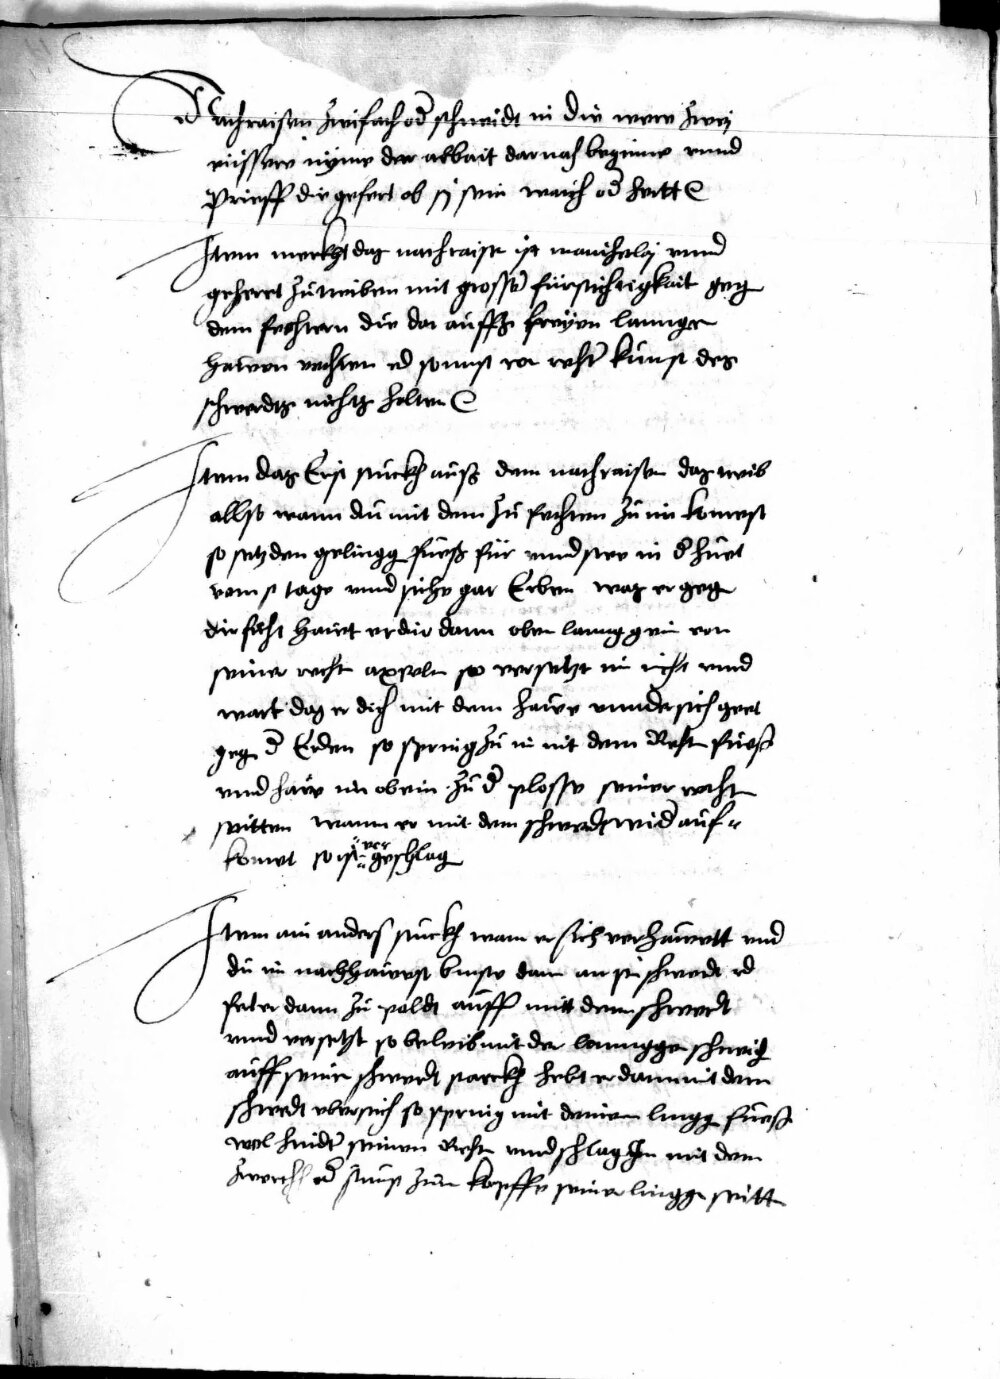 Nachraisen Zwifach od schneidt in die were Zwey
eussere nÿme der arbait darnach beginne vnnd
Prieff die gefert ob sÿ sein waich od hertt
Item merkht das nachraisn ist manicherlaÿ vnnd
geheret Zu treiben mit grosser fürsichtigkait geg
dem fechtern die da auffß freÿen lannge
hawen vechten vnd sonnst von recht kunst des
schwerdtz nichtz halten
Item das Erst stuckh auß dem nachraisen das treib
allso wann du mit dem Zu fechten Zu im komest
so setz den gelingg fueß für vnnd stee in d huet
vom tage vnnd siche gar Eeben was er geg
dir ficht hawt er dir dann oben lanng ein von
seiner recht axseln so versetzt im nicht vnnd
wart das er dich mit dem hawe vnndersich geet
geg d Erden so spring Zu im mit dem Recht fueß
vnnd haw im oben ein Zu d plosse seiner recht
seitten wann er mit dem schwerdt wider auf
komet so ist er geschlag
Item ain anders stuckh wann er sich verhawett vnd
du im nachhawest binste dann an sein schwerdt vnd
fert er dann Zu paldt auff mitt dem schwert
vnnd versetzt so beleib mit der lanngge schneid
auff seinen schwerdt starckh hebt er dann mit dem
schwerdt vbersich so spring mit deinem lingg fueß
wol hindter seinen Recht vnnd schlag Jm mit dem
Zwerch od sunst Zum kopffe seiner lingge seitt